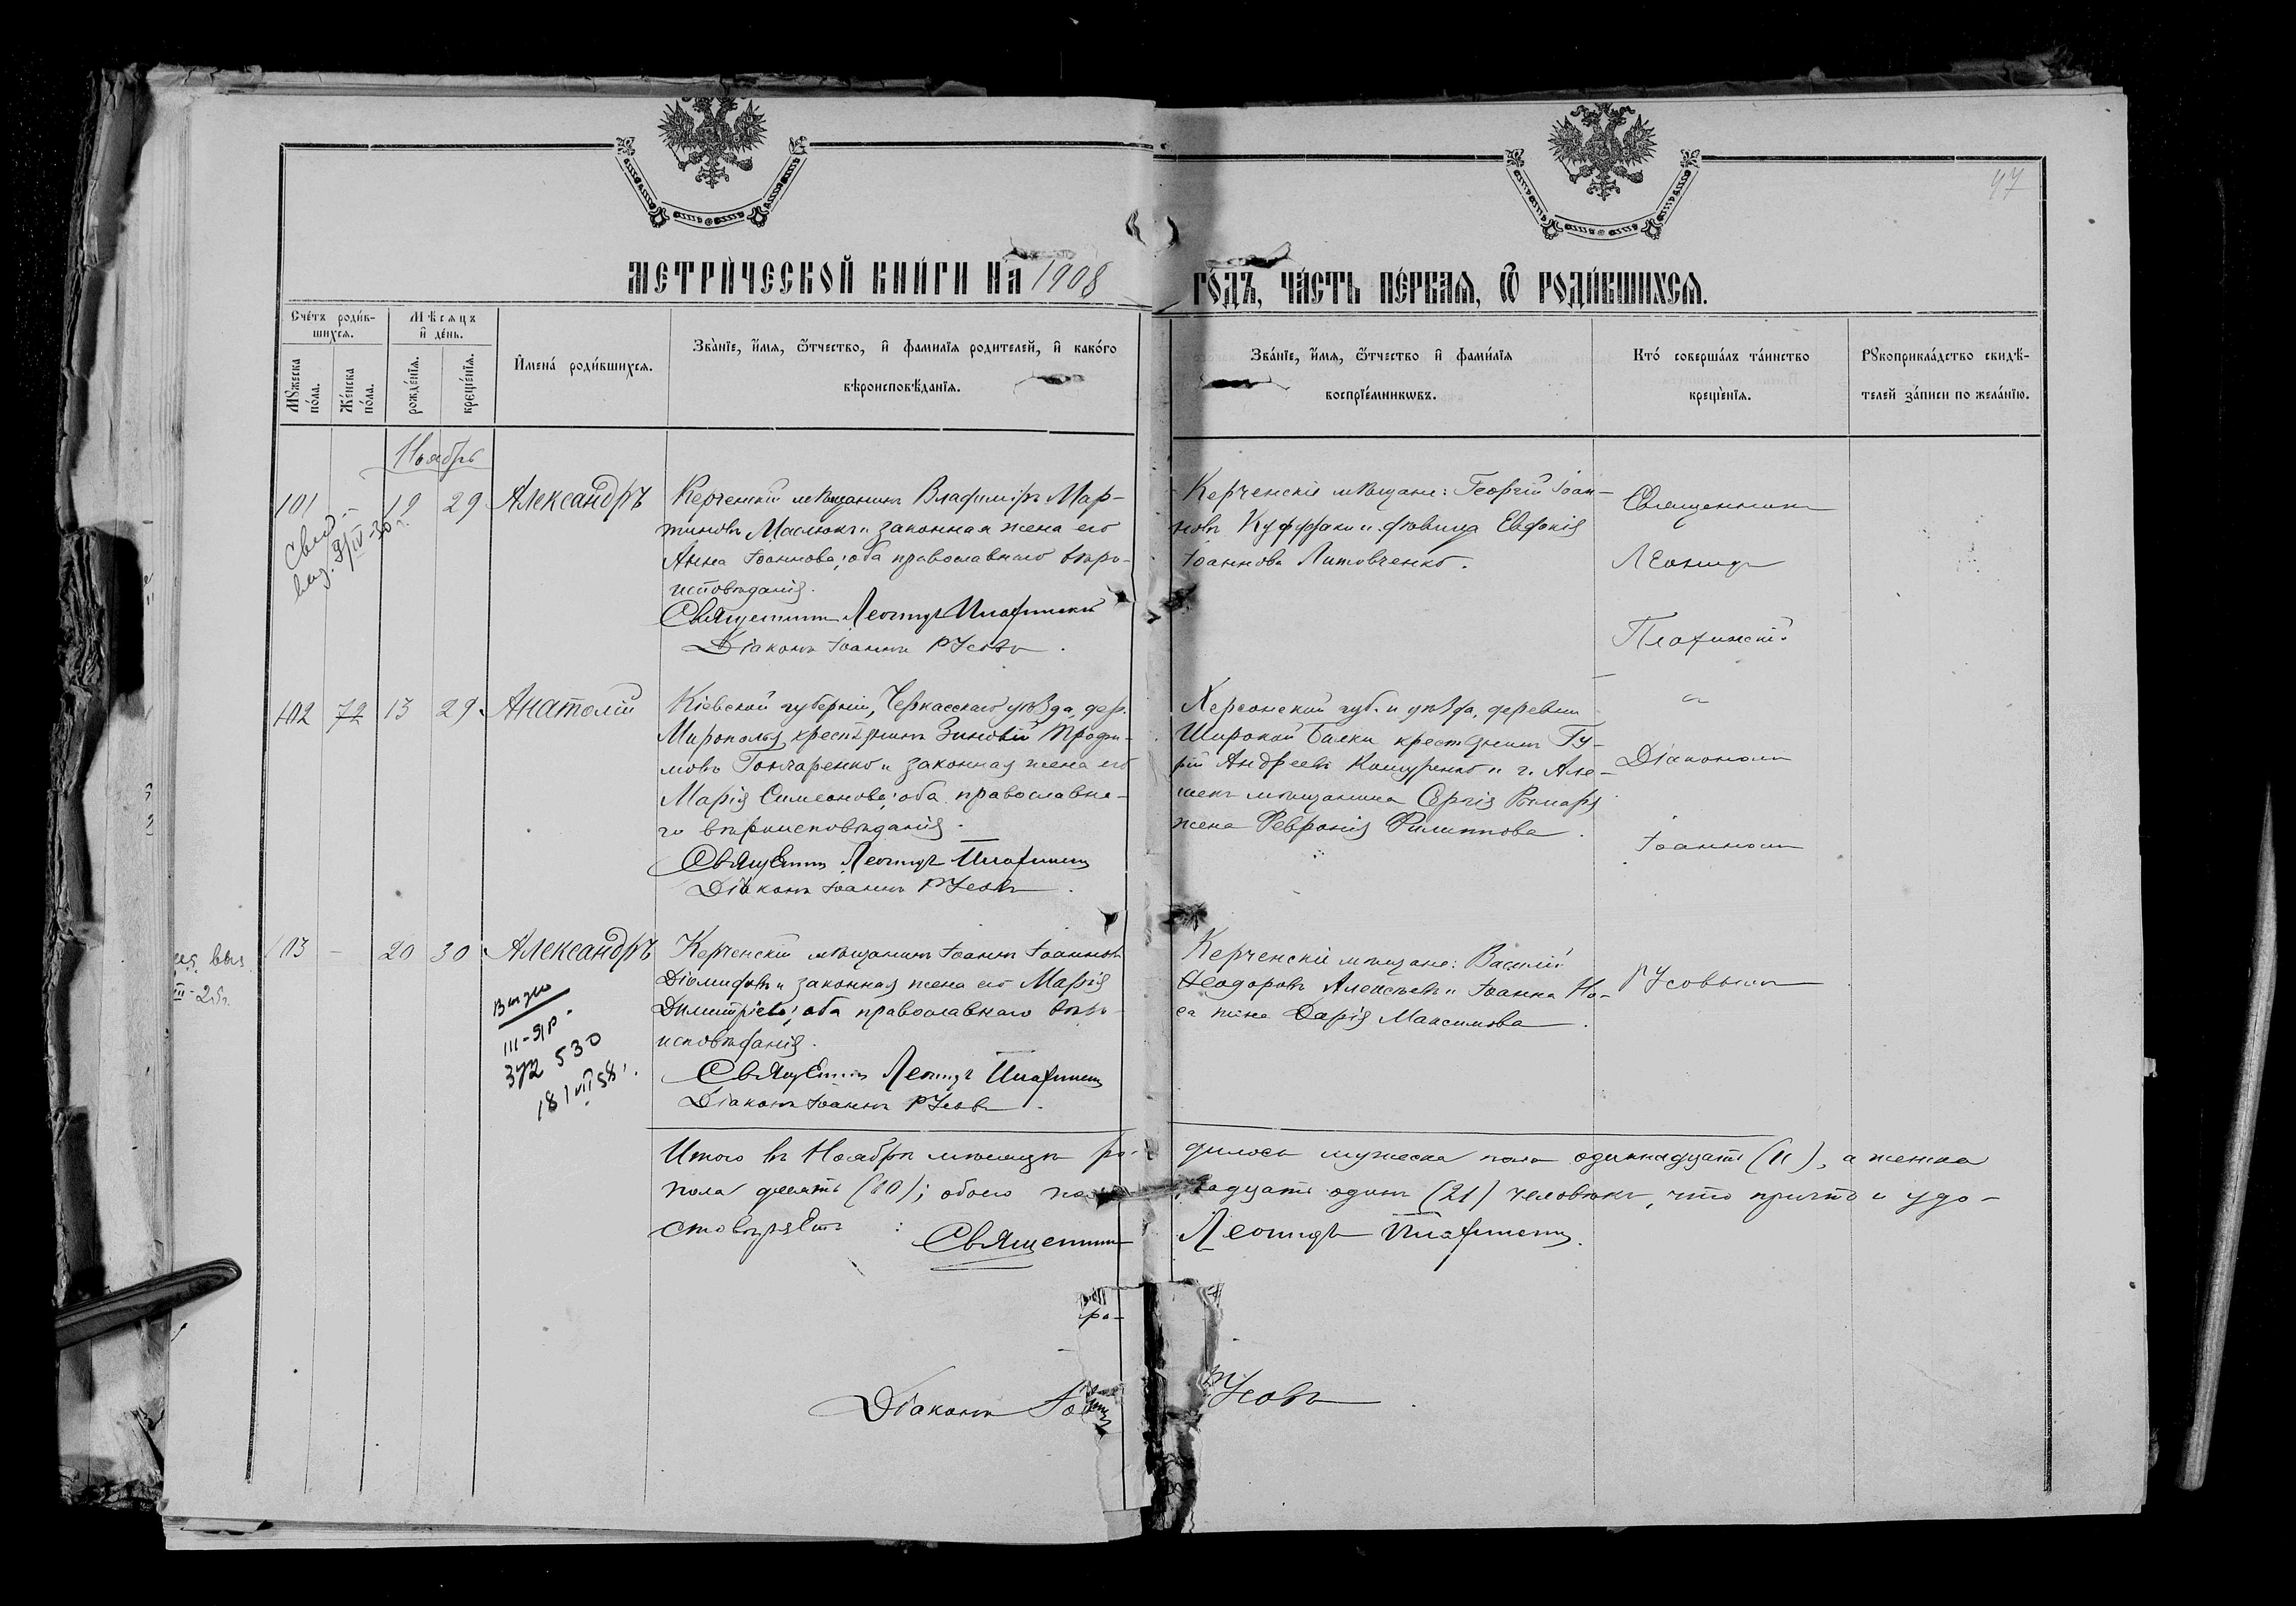 47
МЕТРИЧЕСКОЙ КНИГИ НА 1908 ГОДЪ, ЧАСТЬ ПЕРВАЯ, Ѿ РОДИВШИХСЯ.
Счетъ родив-
шихся.
Мѣсяцъ
и день.
Мꙋжеска
пола.
Женска
пола.
рожденїя.
крещенїя.
Имена родившихся.
Званїе, имя, ѿтчество, и фамилїя родителей, и какого
вѣроисповѣданїя.
Званїе, имя, ѿтчество и фамилїя
воспрїемникѡвъ.
Кто совершалъ таинство
крещенїя.
Рꙋкоприкладство свидѣ-
телей записи по желанїю.
Ноябрь
101 - 19 29 Александръ
Керченскій мѣщанинъ Владиміръ Мар-
тиновъ Маслюкъ и законная жена его
Анна Іоаннова, оба православнаго вѣро-
исповѣданія.
Священникъ Леонидъ
Діаконъ Іоаннъ Русовъ.
Керченскіе мѣщане: Георгій Іоан-
новъ и дѣвица Евфокія
Іоаннова Литовченко.
Священникъ
Леонидъ
102 72 13 29 Анатолій
Кіевской губерніи, Черкасскаго уѣзда, дер.
Мирополья, крестьянинъ Зиновій Трофи-
мовъ Гончаренко и законная жена его
Марія Симеонова; оба православна-
го вѣроисповѣданія.
Священникъ Леонидъ
Діаконъ Іоаннъ Русовъ.
Херсонской губ. и уѣзда, деревни
Широкой Балки крестьянинъ Гу-
рій Андреевъ и г. Але-
шекъ мѣщанина Сергія
жена Февронія Филиппова.
и
Діакономъ
Іоанномъ
103 - 20 30 Александръ
Керченскій мѣщанинъ Іоаннъ Іоанновъ
Діомидовъ и законная жена его Марія
Димитріева; оба православнаго вѣро-
исповѣданія.
Священникъ Леонидъ
Діаконъ Іоаннъ Русовъ.
Керченскіе мѣщане: Василій
Ѳеодоровъ Алексѣевъ и Іоанна Но-
са жена Дарія Максимова.
Русовымъ
III-ЯР.
372530
18/VII 58.
Итого въ Ноябрѣ мѣсяцѣ ро-дилось мужеска пола одиннадцать (11), а женска
пола десять (10); обоего двадцать одинъ (21) человѣкъ, что причтъ и удо-
стовѣряетъ: Священникъ Леонидъ
Діаконъ Русовъ.